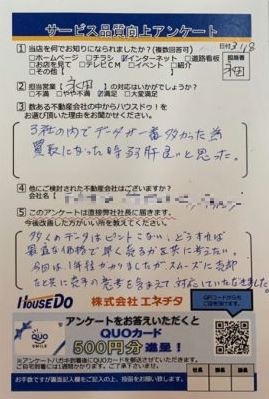 サービス品質向上アンケート
日付 3/18
1 当店を何でお知りになられましたか?(複数回答可)
□ホームページ □チラシ ☑インターネット □道路看板
□お店を見て □テレビCM □イベント □紹介
□その他【 】
担当者
永田
2 担当営業【 永田 】の対応はいかがでしょうか?
□不満 □やや不満 ☑満足 □大変満足
3 数ある不動産会社の中からハウスドゥ!を
お選び頂いた理由をお聞かせください。
3社の内でデータが一番多かった為
買取になった時
良いと思った。
4 他にご検討された不動産会社はございますか?
会社名(
5 このアンケートは直接弊社社長に届きます。
今後改善した方がいい所を教えてください。
多くのデータはピントこない、どうすれば
最良な価格で早く売るかを共に考えたい。
今回は1年程かかりましたがスムーズに売却
たと共に
対応していただきました。
HOUSEDO 株式会社エネチタ
QRコードからも
アンケートをお答えいただくと
QUOカード
500円分 進呈!
QUO
SMILE
※アンケートハガキ到着後にQUOカードを郵送させていただきます。
ご自宅到着には1週間かかります。ご了承ください。
お手数ですが裏面記入欄をご記入の上、投函をお願い致します。
社長
部長